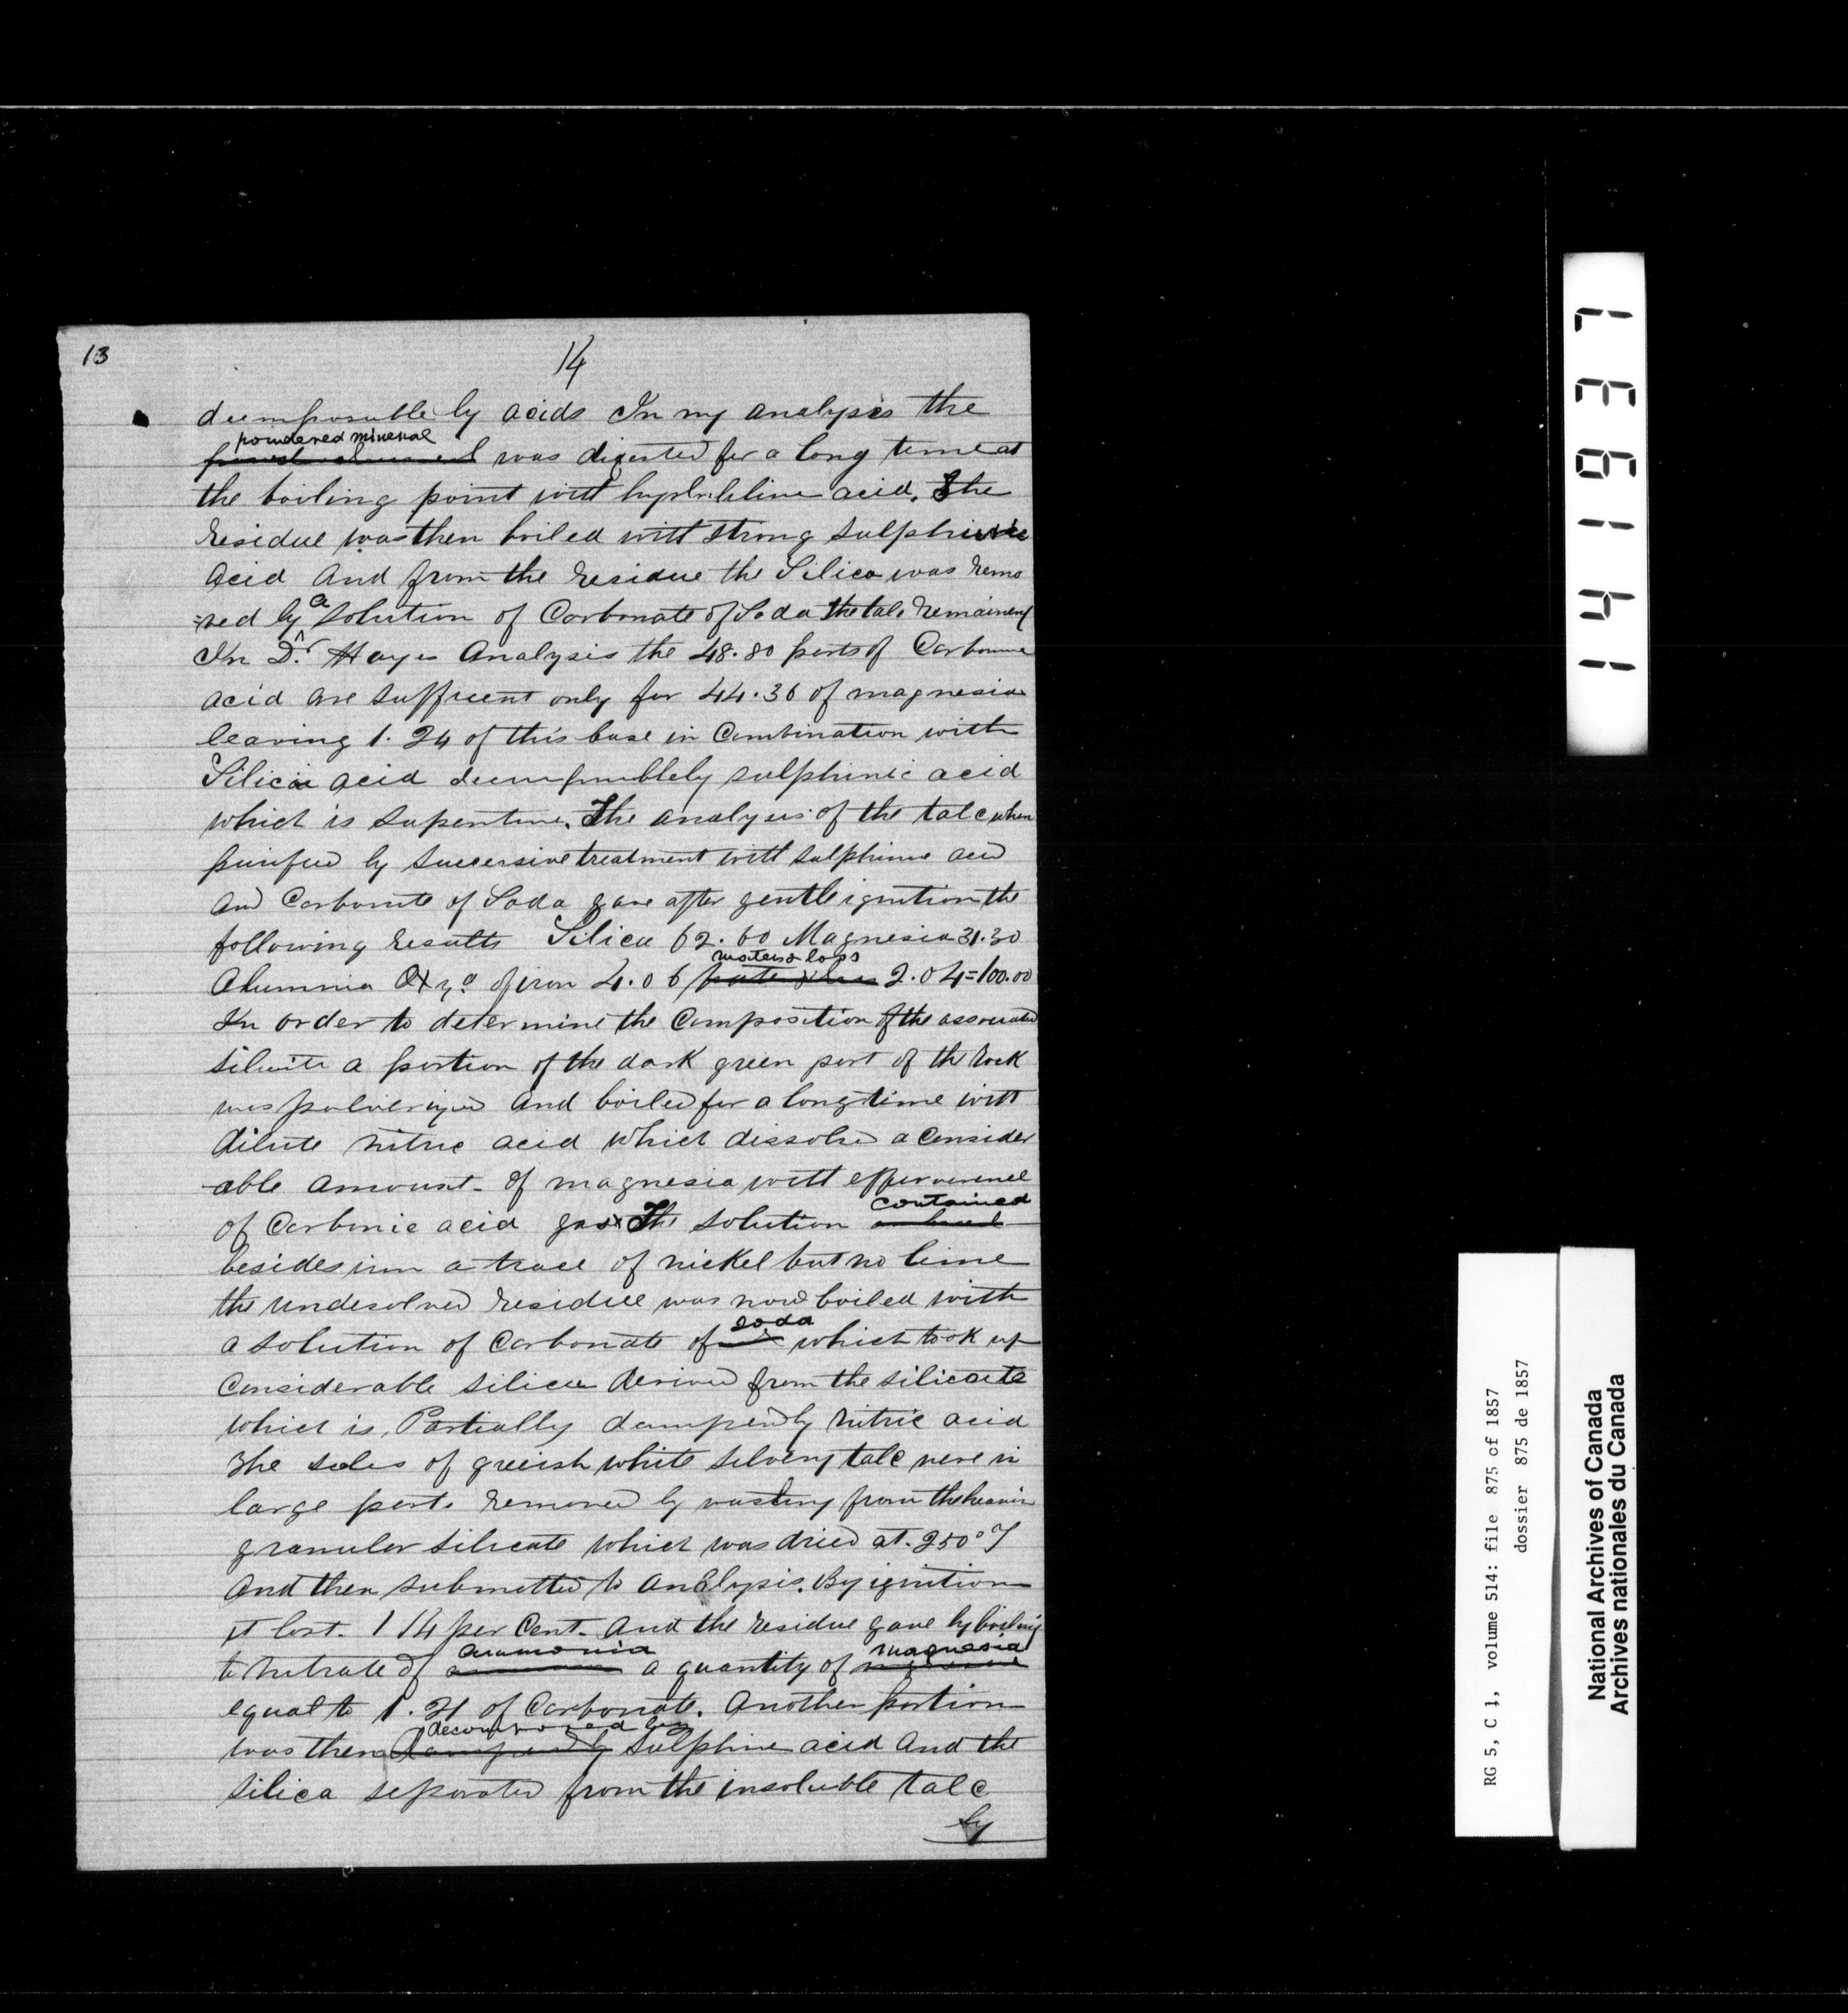 13
14
decomposable by acids In my analysis the
powdered mineral
was digested for a long time at
the boiling point with acid. The
residue was then boiled with strong sulphuric
acid and from the residue the Silica was remo
=ved by a solution of Carbonate of Soda the talc remained
In Dr. Hayes Analysis the 48.80 parts of Carbonic
acid are sufficent only for 44.36 of magnesia
leaving 1.24 of this base in Combination with
Silicic acid by sulphuric acid
which is Serpentine. The analysis of the talc when
purified by successive treatment with sulphuric acid
and Carbonate of Soda gave after gentle ignition the
following results Silica 62.60 Magnesia 31.30
water & loss
Alumina & Oxyd of iron 4.06 2.04=100.00
In order to determine the Composition of the associated
silicate a portion of the dark green part of the rock
was pulverized and boiled for a long time with
dilute nitric acid which dissolved a Consider
-able amount of magnesia with effervescence
contained
of Carbonic acid gas The solution
besides iron a trace of nickel but no lime
the undesolved residue was now boiled with
soda
a solution of Carbonate of which took up
Considerable silica derived from the silicate
which is Partially by nitric acid
The scales of greeish white silvery talc were in
large part removed by washing from the heavier
granular silicate which was dried at 250° F
And then submitted to analysis. By ignition
it lost 1/4 per Cent. And the residue gave by boiling
ammonia magnesia
to nitrate of a quantity of
equal to 1.21 of Carbonate. Another portion
decomposed by
was then sulphuric acid and the
silica separated from the insoluble talc
by
141637
RG 5, C 1, volume 514: file 875 of 1857
dossier 875 de 1857
National Archives of Canada
Archives nationales du Canada